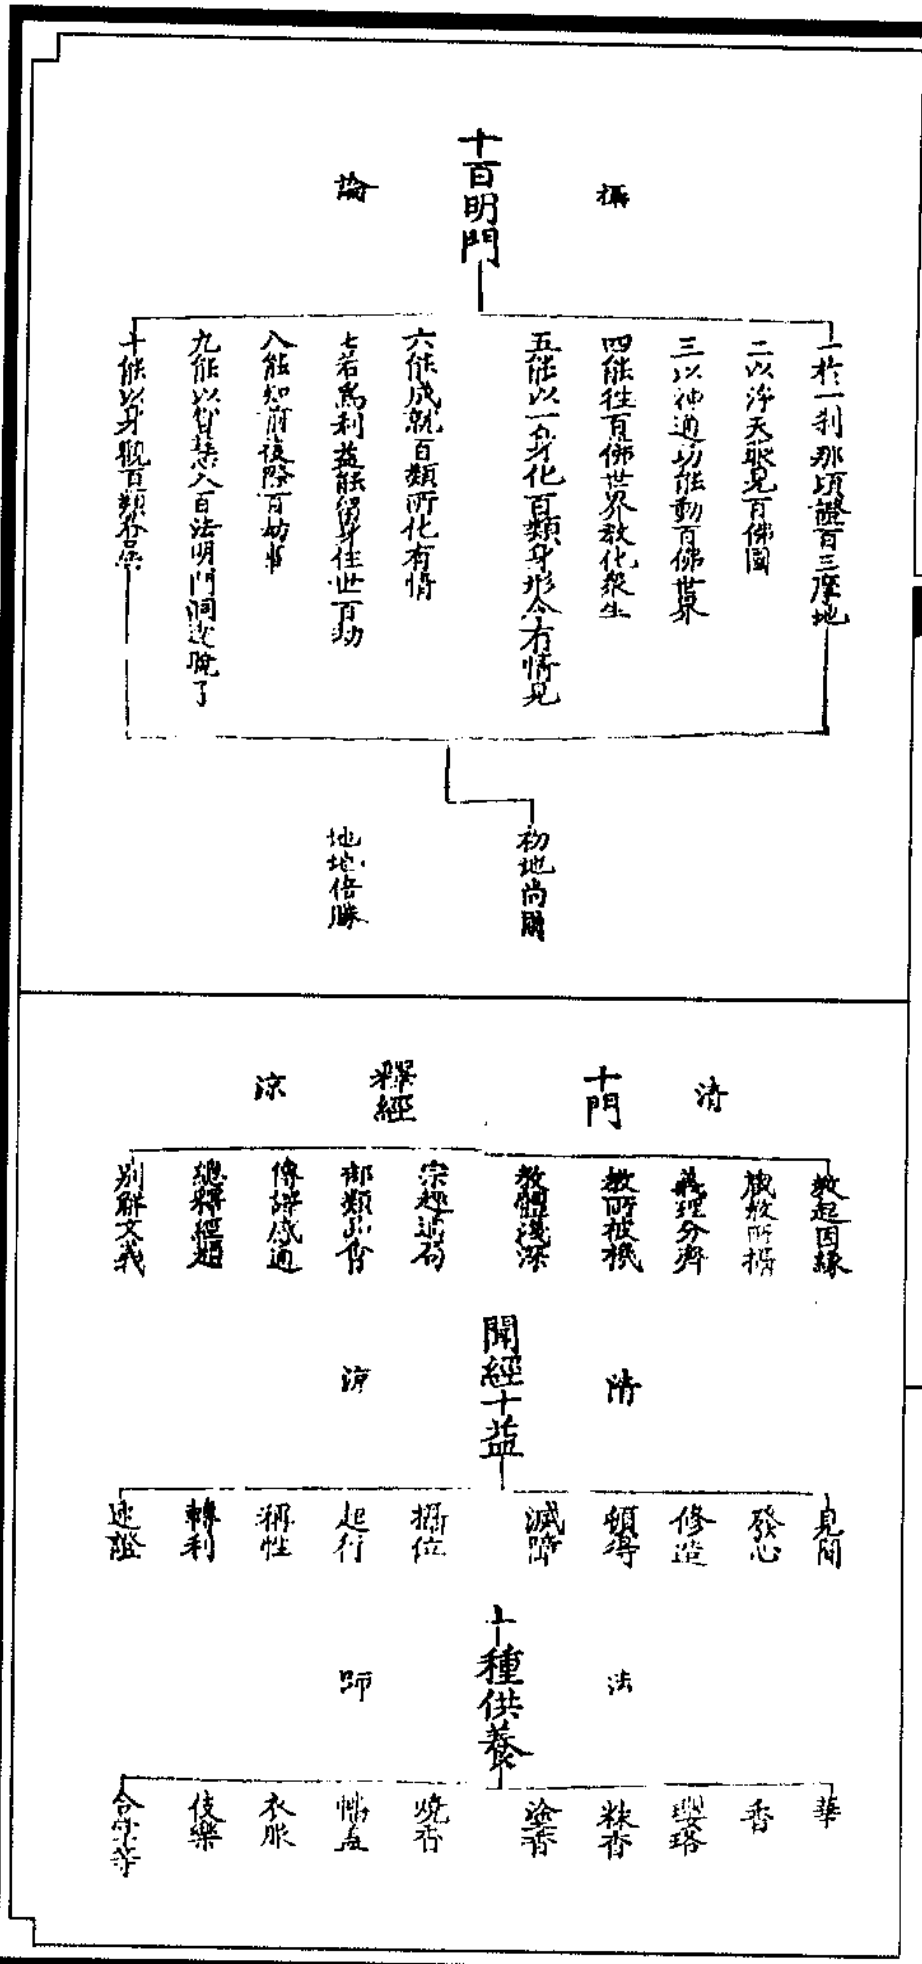 攝
十百明門
論
一於一刹那頃證百三摩地
二以淨天眼見百佛國
三以神通功能動百佛世界
四能往百佛世界教化衆生
五能以一身化百類身形令有情見
六能成就百類所化有情
七若爲利益能留身住世百劫
八能知前後際百劫事
九能以智慧入百法明門洞達曉了
十能以身現百類眷屬
初地尚爾
地地倍勝
清
十門
釋經
涼
教起因緣
藏教所攝
義理分齊
教所被機
教體淺深
宗趣通局
部類品會
傳譯感通
總釋經題
別解文義
清
聞經十益
涼
見聞
發心
修造
頓得
滅障
攝位
起行
稱性
轉利
速證
法
十種供養
師
華
香
瓔珞
粖香
塗香
燒香
幡蓋
衣服
伎樂
合掌等